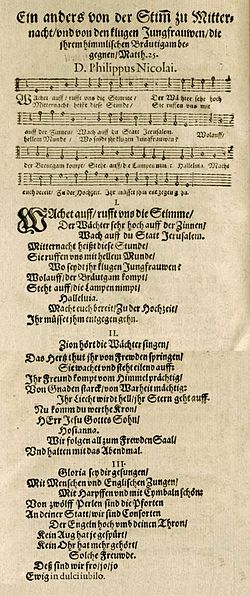 Ein anders von der Stim̃ zu Mitter-
nacht/ vnd von den klugen Jungfrauwen/ die
jhrem himmlischen Bräutigam be-
gegnen/ Matth. 25.
D. Philippus Nicolai.
WAchet auff/ rufft vns die Stimme/ Der Wächter sehr hoch
Mitternacht heißt diese Stunde/ Sie ruffen vns mit
auff der Zinnen/ Wach auff du Statt Jerusalem. Wolauff/
hellem Munde/ Wo seydt jhr klugen Jungfrauwen?
der Breutgam kompt/ Steht auff die Lampen nimt: Halleluia. Macht
euch bereit/ Zu der Hochzeit/ Jhr müsset jhm entgegen gehn.
I.
WAchet auff/ rufft vns die Stimme/
Der Wächter sehr hoch auff der Zinnen/
Wach auff du Statt Jerusalem.
Mitternacht heißt diese Stunde/
Sie ruffen vns mit hellem Munde/
Wo seydt jhr klugen Jungfrauwen?
Wolauff/ der Bräutgam kompt/
Steht auff/ die Lampen nimpt/
Halleluia.
Macht euch bereit/ Zu der Hochzeit/
Jhr müsset jhm entgegen gehn.
II.
Zion hört die Wächter singen/
Das Hertz thut jhr von Frewden springen/
Sie wachet vnd steht eilend auff:
Jhr Freund kompt vom Himmel prächtig/
Von Gnaden starck/ von Warheit mächtig:
Jhr Liecht wirdt hell/ jhr Stern geht auff.
Nu komm du werthe Kron/
HErr Jesu Gottes Sohn/
Hosianna.
Wir folgen all zum Frewden Saal/
Vnd halten mit das Abendmal.
III.
Gloria sey dir gesungen/
Mit Menschen vnd Englischen Zungen/
Mit Harpffen vnd mit Cymbaln schön:
Von zwölff Perlen sind die Pforten
An deiner Statt/ wir sind Consorten
Der Engeln hoch vmb deinen Thron/
Kein Aug hat je gespürt/
Kein Ohr hat mehr gehört/
Solche Frewde.
Deß sind wir fro/ jo/ jo
Ewig in dulci iubilo.